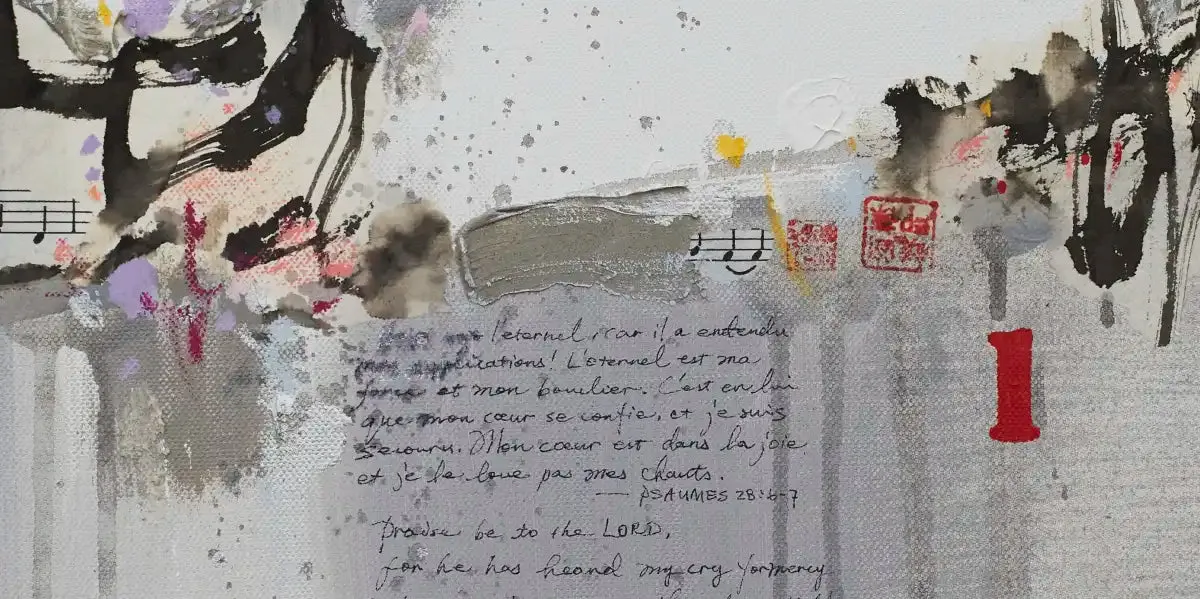 l'eternel, car il a entendu
mes supplications! L'eternel est ma
force et mon bouclier. C'est en lui
que mon cœur se confie, et je suis
secouru. Mon cœur est dans la joie
et je le loue pas mes chants.
— PSAUMES 28:6-7
Praise be to the LORD,
for he has heard my cry for mercy
1